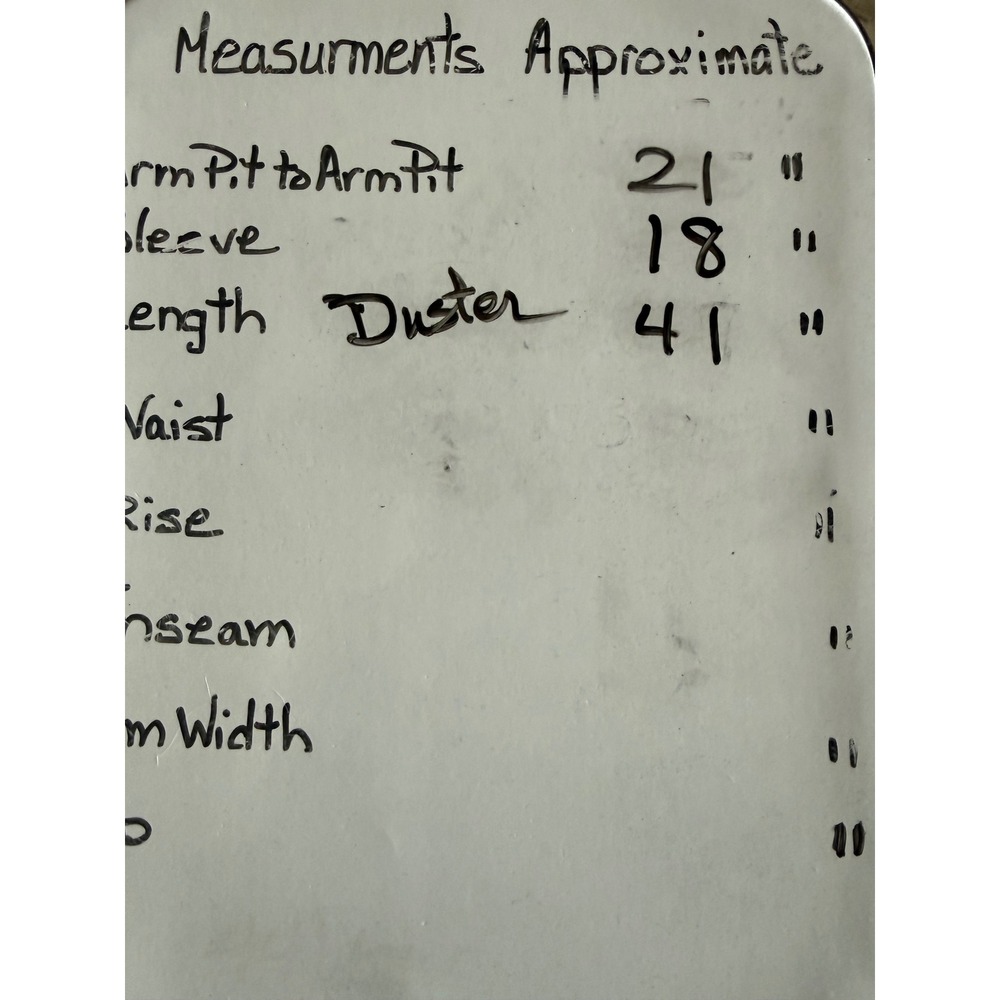 Measurments Approximate
rm Pit to Arm Pit 21 "
leeve 18 "
ength Duster 41 "
Waist "
Rise "
nseam "
m Width "
"